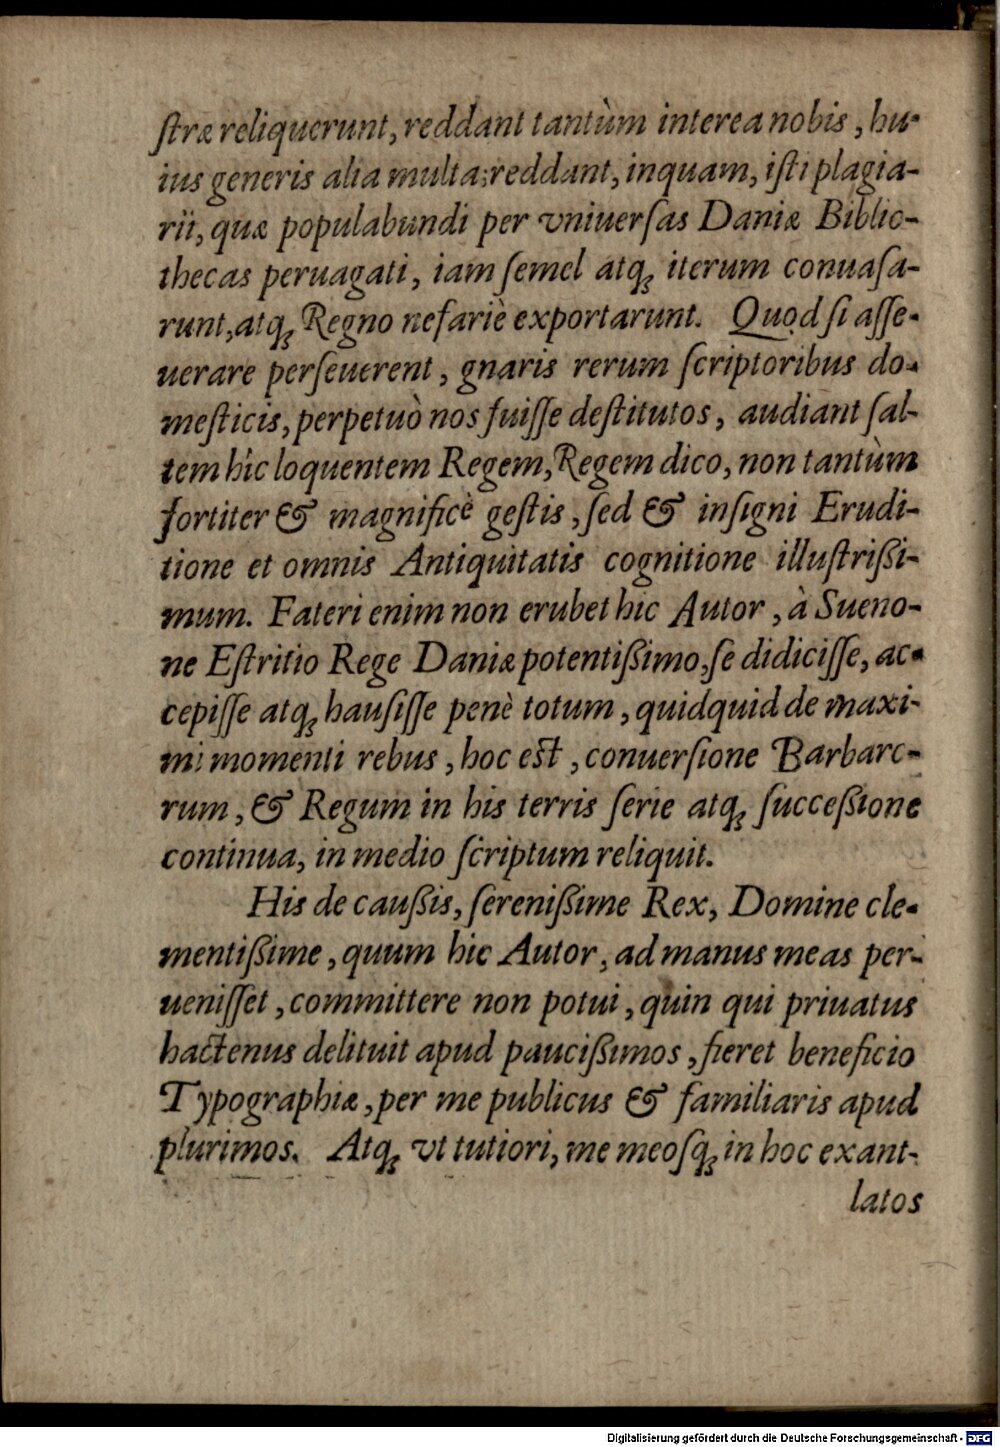 ſtræ reliquerunt, reddant tantùm interea nobis, hu-
ius generis alia multa: reddant, inquam, iſti plagia-
rii, quæ populabundi per vniuerſas Daniæ Biblio-
thecas peruagati, iam ſemel atq́; iterum conuaſa-
runt, atq́; Regno nefariè exportarunt. Quod ſi aſſe-
uerare perſeuerent, gnaris rerum ſcriptoribus do-
meſticis, perpetuò nos fuiſſe deſtitutos, audiant ſal-
tem hîc loquentem Regem, Regem dico, non tantùm
fortiter & magnificè geſtis, ſed & inſigni Erudi-
tione et omnis Antiquitatis cognitione illuſtrißi-
mum. Fateri enim non erubet hic Autor, à Sueno-
ne Eſtritio Rege Daniæ potentißimo, ſe didiciſſe, ac-
cepiſſe atq́; hauſiſſe penè totum, quidquid de maxi-
mi momenti rebus, hoc eſt, conuerſione Barbaro-
rum, & Regum in his terris ſerie atq́; ſucceßione
continua, in medio ſcriptum reliquit.
His de caußis, ſerenißime Rex, Domine cle-
mentißime, quum hic Autor, ad manus meas per-
ueniſſet, committere non potui, quin qui priuatus
hactenus delituit apud paucißimos, fieret beneficio
Typographiæ, per me publicus & familiaris apud
plurimos. Atq́; vt tutiori, me meoſq́; in hoc exant-
latos
Digitalisierung gefördert durch die Deutsche Forschungsgemeinschaft - DFG